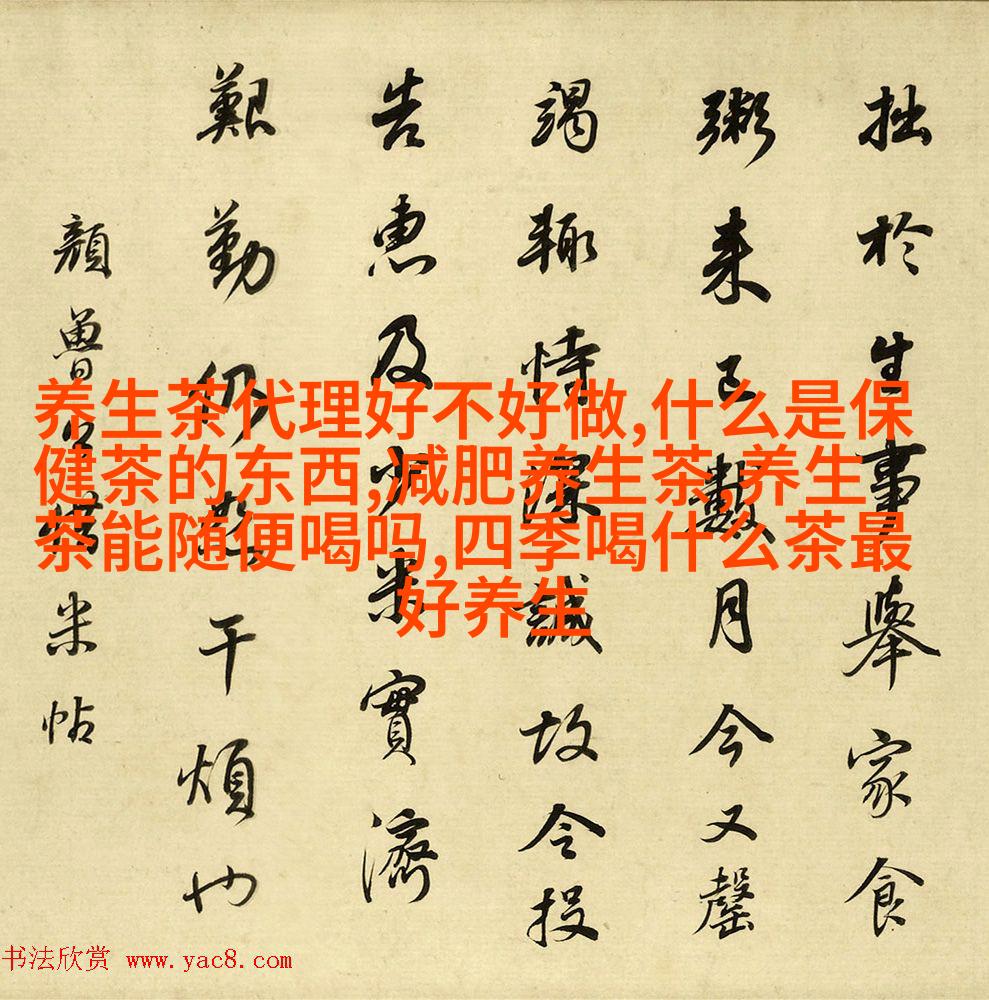 拙於生事舉家食
粥来已數月今又罄
竭輙恃深誠故令投
告惠及少米實濟
艱勤仍恕干煩也
顔魯公乞米帖
养生茶代理好不好做,什么是保
健茶的东西,减肥养生茶,养生
茶能随便喝吗,四季喝什么茶最
好养生
书法欣赏 www.yac8.com